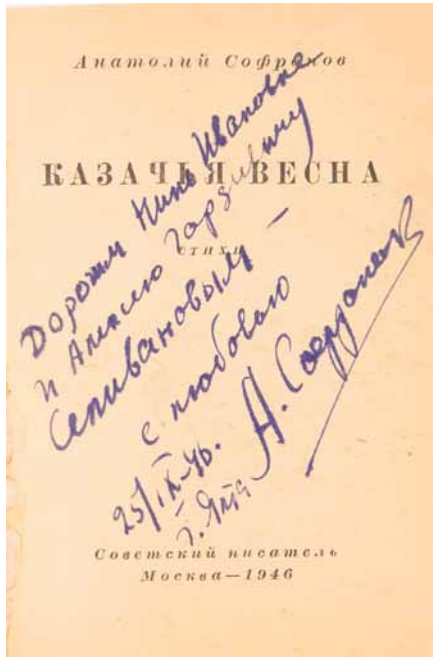 Анатолий Софронов
КАЗАЧЬЯ ВЕСНА
стихи
Дорогим Нине Ивановне
и Алексею
Селивановым —
с любовью
А. Софронов
25/IX-46.
г. Ялта
Советский писатель
Москва—1946